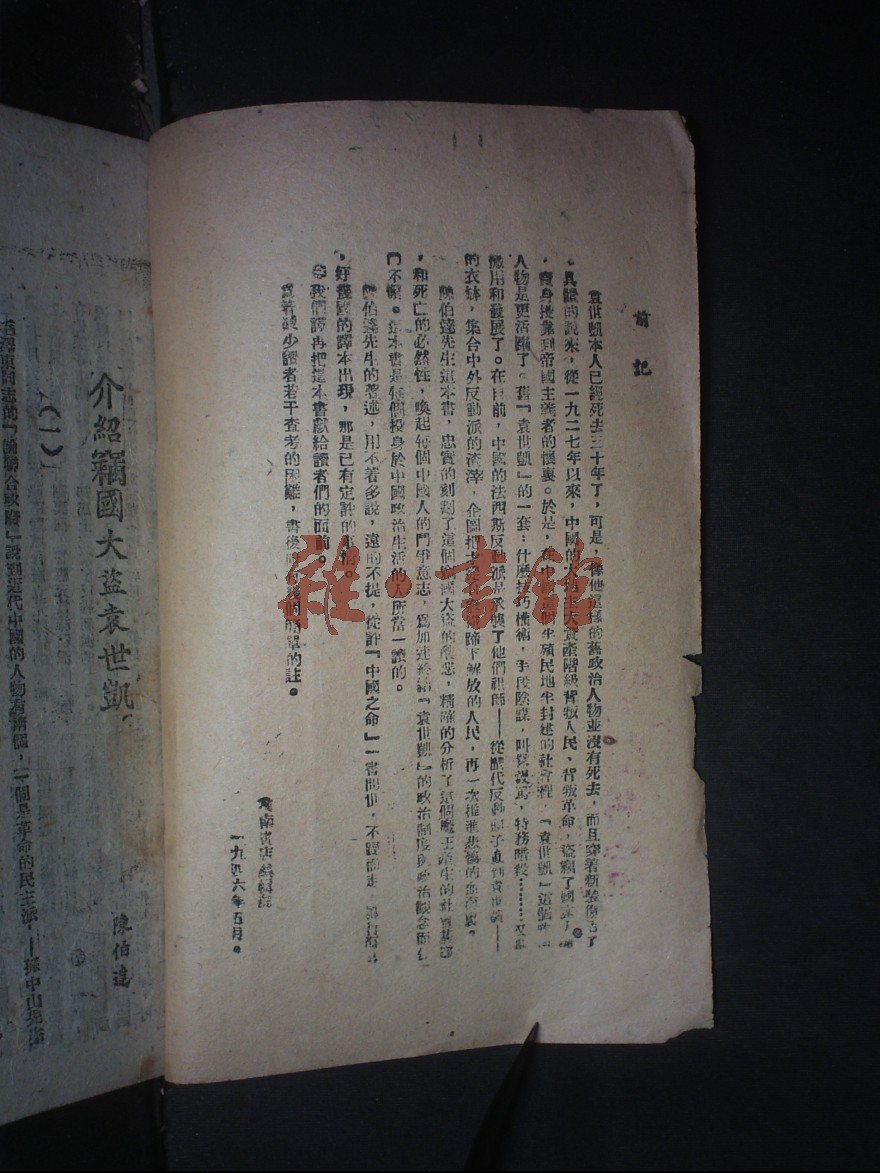 前記
袁世凱本人已經死去三十年了，可是，像他這樣的舊政治人物並沒有死去，而且穿着新裝復古了
。具體的說來，從一九二七年以來，中國的大地主大資產階級背叛人民，背叛革命，盜竊了國
，賣身投靠到帝國主義者的懷裏。於是，在中國這個半殖民地半封建的社會裡，「袁世凱」這個
人物是更活躍了。舊「袁世凱」的一套：什麼技巧權術，手段陰謀，叫 特務暗殺………
應用和發展了。在目前，中國的法西斯反動派是承襲了他們祖師——從歷代反動 子直到袁世凱——
的衣缽，集合中外反動派的渣滓，企圖把 蹄下解放的人民，再一次推進悲慘的血海裏？
陳伯達先生這本書，忠實的刻劃了這個竊國大盜的醜惡，精確的分析了這個魔王產生的社會基
，和死亡的必然性，喚起每個中國人的鬥爭意志，爲加速終結「袁世凱」的政治制度與政治觀念而
鬥不懈。這本書是每個投身於中國政治生活的人所當一讀的。
陳伯達先生的著述，用不着多說，遠的不提，從評「中國之命」一書問世，不脛而走，
，好幾國的譯本出現，那是已有定評的 。
我們謹再把這本書獻給讀者們的面前。
爲着減少讀者若干查考的困難，書後附 幾個簡單的註。
南書店編輯部
一九四六年五月。
雅·書館
介紹竊國大盜袁世凱
陳伯達
（一）
毛澤東同志的「論聯合政府」說到近代中國的人物有兩個，一個是革命的民主派——孫中山先生